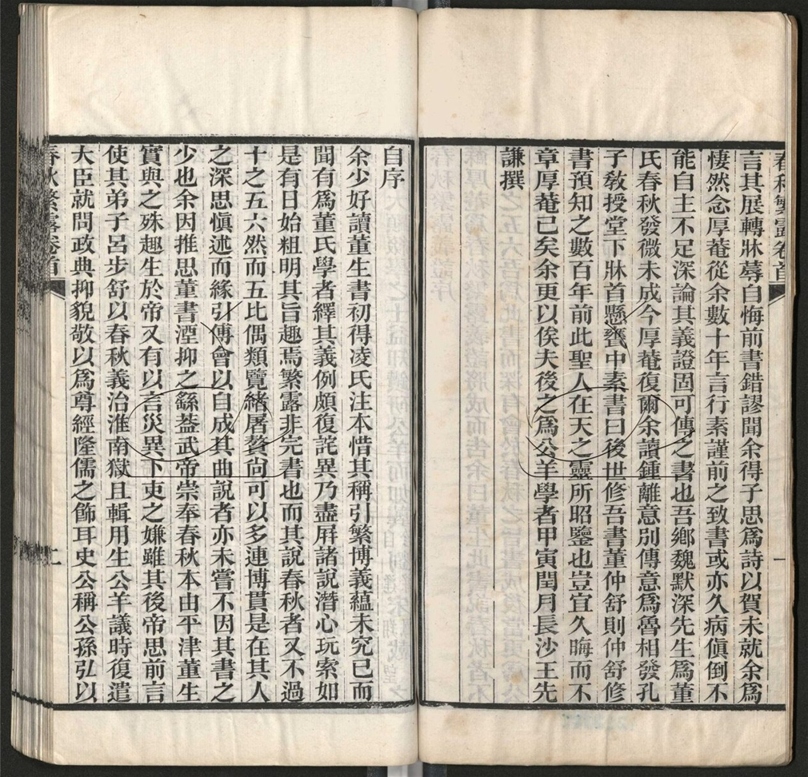 春秋繁露卷首
一
言其展轉牀蓐自悔前書錯謬聞余得子思爲詩以賀未就余爲
悽然念厚菴從余數十年言行素謹前之致書或亦久病傎倒不
能自主不足深論其義證固可傳之書也吾鄉魏默深先生爲董
氏春秋發微未成今厚菴復爾余讀鍾離意別傳意爲魯相發孔
子敎授堂下牀首懸甕中素書曰後世修吾書董仲舒則仲舒修
書預知之數百年前此聖人在天之靈所昭鑒也豈宜久晦而不
章厚菴已矣余更以俟夫後之爲公羊學者甲寅閏月長沙王先
謙撰
自序
余少好讀董生書初得凌氏注本惜其稱引繁博義蘊未究已而
聞有爲董氏學者繹其義例頗復詫異乃盡屛諸說潛心玩索如
是有日始粗明其旨趣焉繁露非完書也而其說春秋者又不過
十之五六然而五比偶類覽緒屠贅尙可以多連博貫是在其人
之深思愼述而緣引傅會以自成其曲說者亦未嘗不因其書之
少也余因推思董書湮抑之繇蓋武帝崇奉春秋本由平津董生
實與之殊趣生於帝又有以言災異下吏之嫌雖其後帝思前言
使其弟子呂步舒以春秋義治淮南獄且輯用生公羊議時復遣
大臣就問政典抑貌敬以爲尊經隆儒之飾耳史公稱公孫弘以
春秋繁露卷首
二